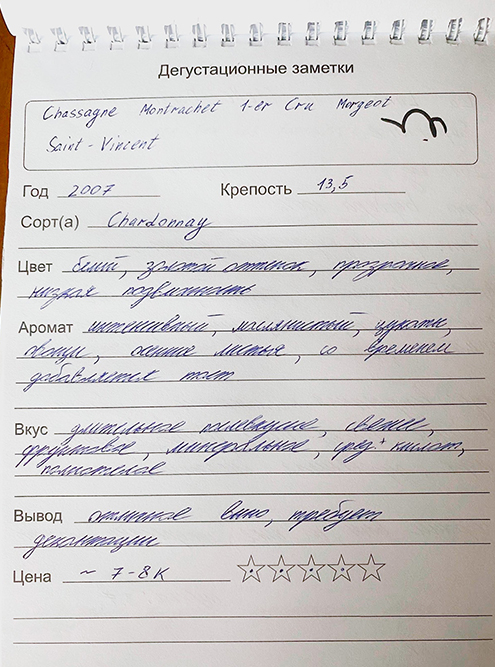 Дегустационные заметки
Chassagne Montrachet 1-er Cru Morgeot
Saint-Vincent
Год 2007 Крепость 13,5
Сорт(а) Chardonnay
Цвет белый, золотой оттенок, прозрачное,
низкая подвижность
Аромат интенсивный, маслянистый, цукаты,
овощи, осенние листья, со временем
добавляется тост
Вкус длительное послевкусие, свежее,
фруктовое, минеральное, сред+ кислот,
полнотелое
Вывод отличное вино, требует
декантации
Цена ~ 7-8к